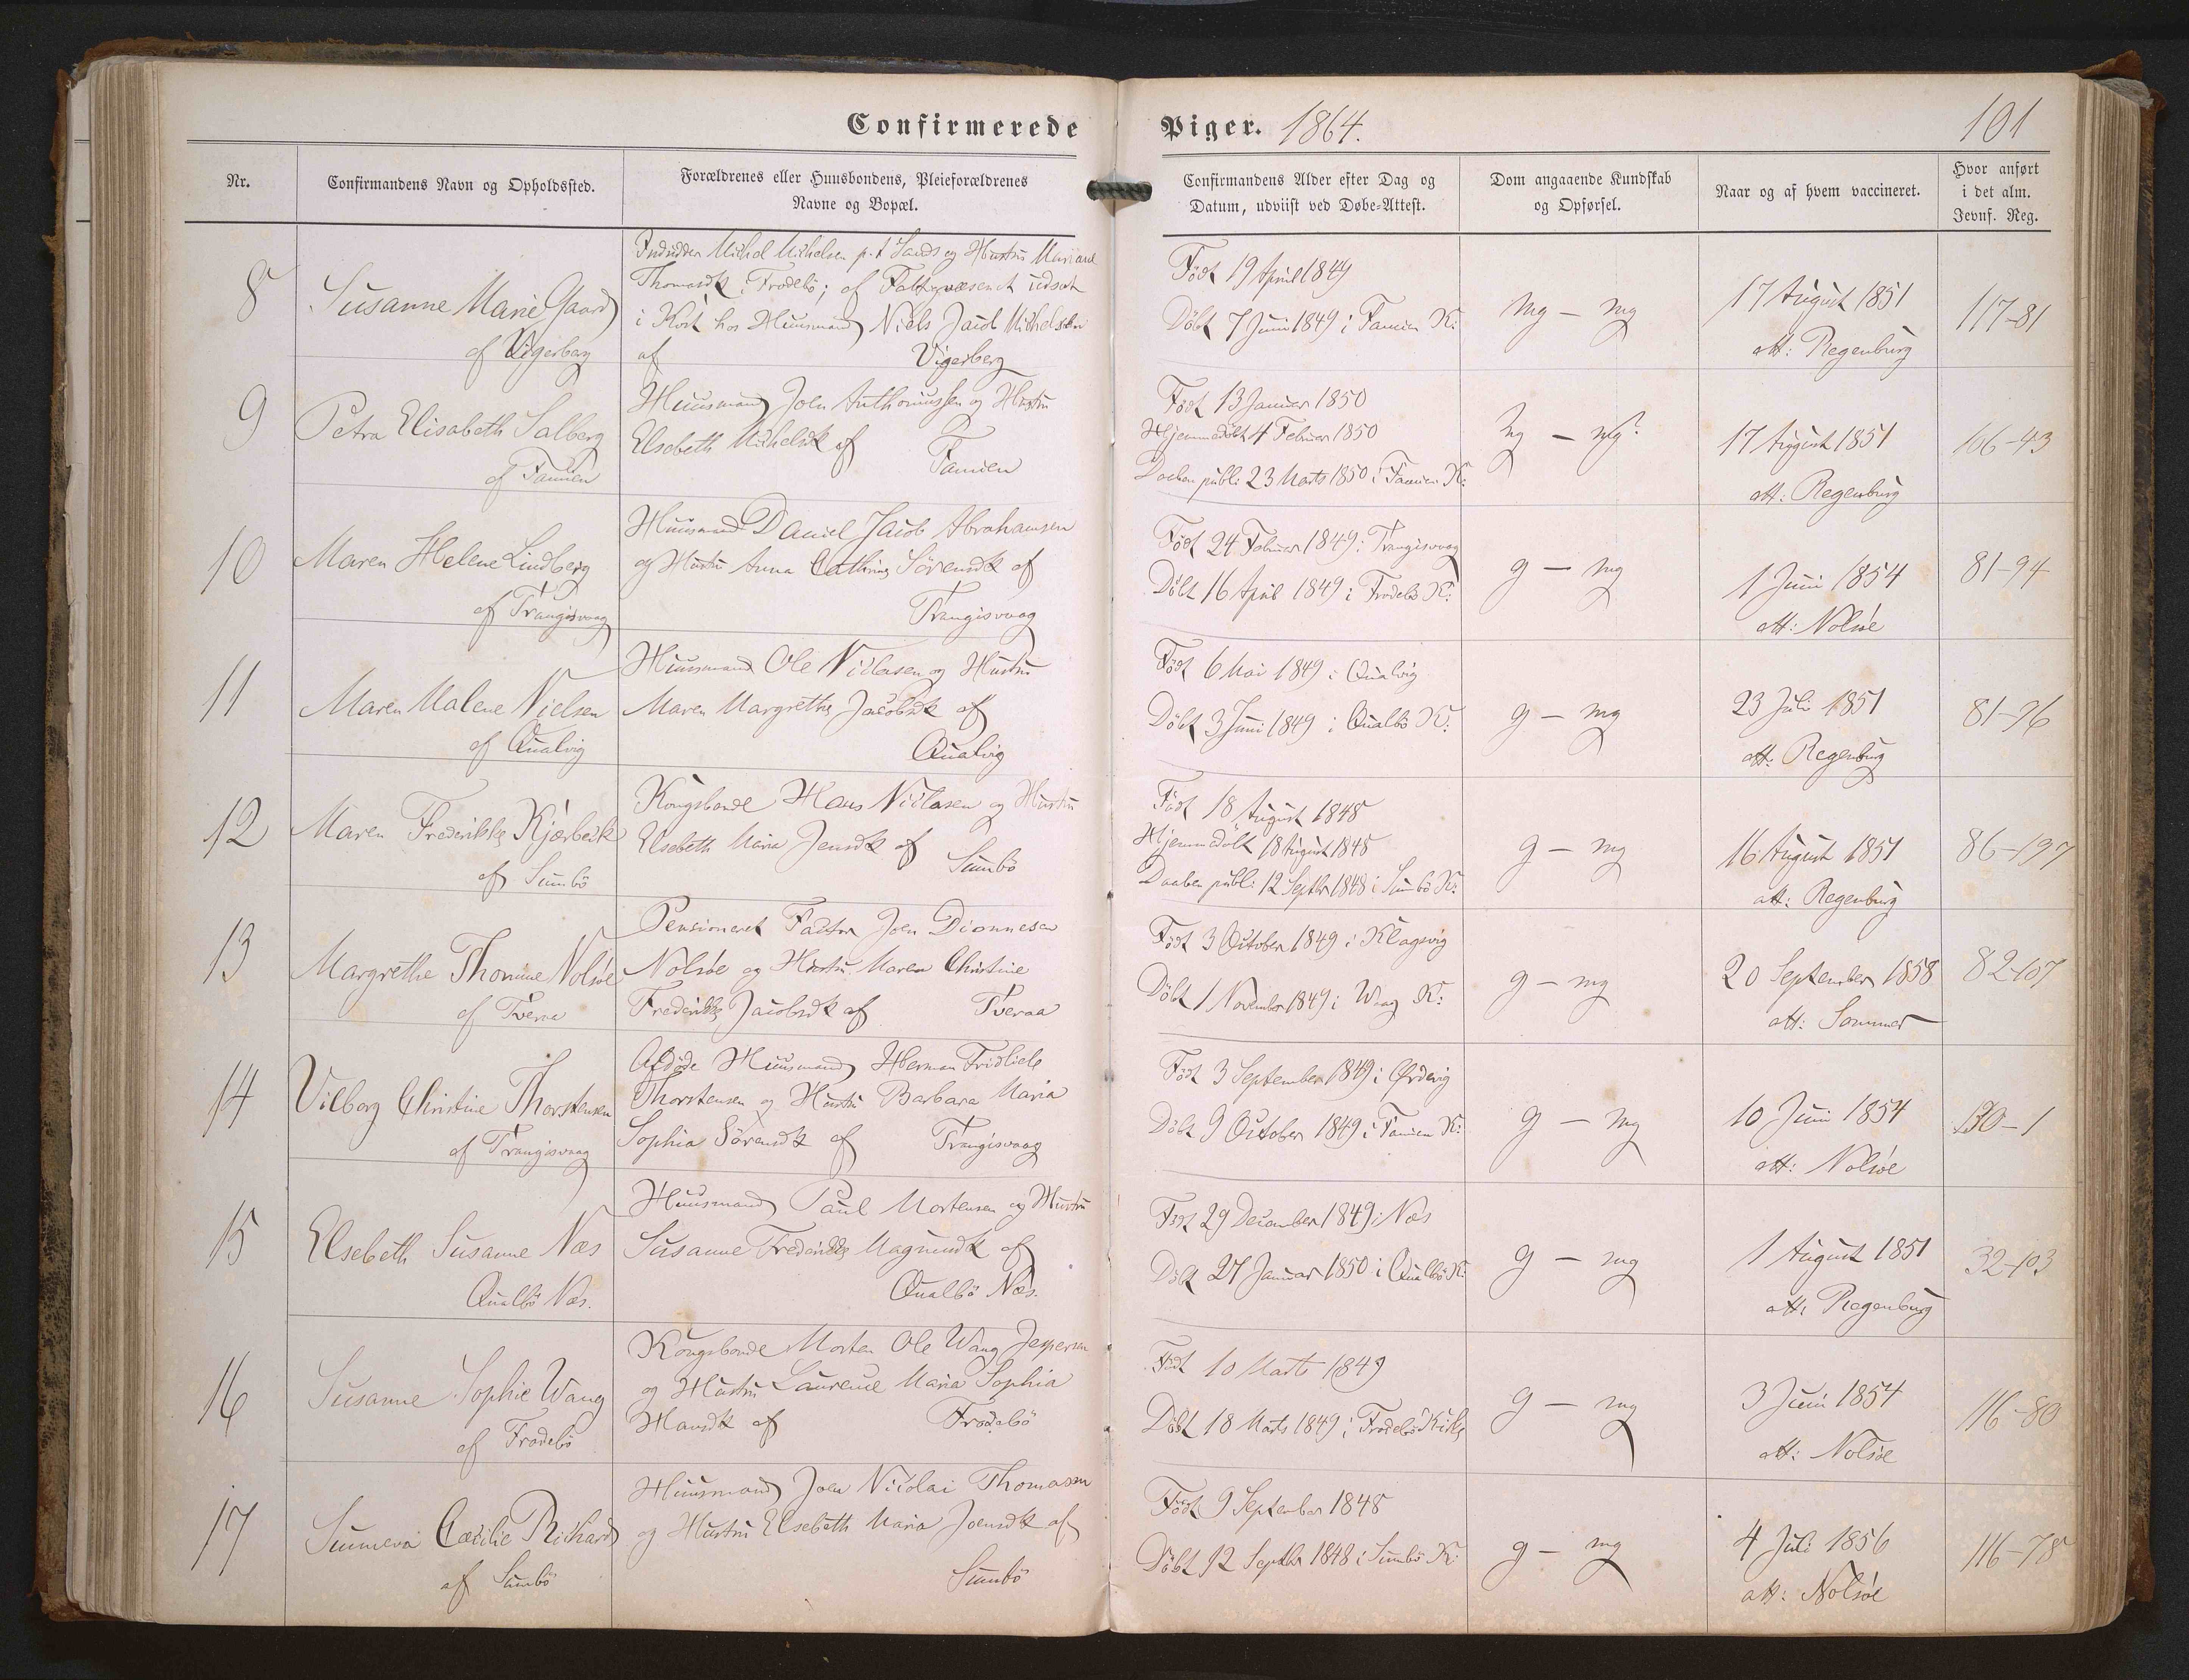 Confirmerede
Piger. 1864.
101
Nr.
Confirmandens Navn og Opholdssted.
Forældrenes eller Huusbondens, Pleieforældrenes
Navne og Bopæl.
Confirmandens Alder efter Dag og
Datum, udviist ved Døbe-Attest.
Dom angaaende Kundskab
og Opførsel.
Naar og af hvem vaccineret.
Hvor anført
i det alm.
Jevnf. Reg.
8
Susanne Marie Gaard
af Vigerberg
Michel Michelsen p. t Sands og Hustru Mariane
Thomasdt. Frodebö; af Fattigvæsenet udsat
i Kost hos Huusmand Niels Jacob Michelsen
af Vigerberg
Födt 19 April 1849
Döbt 7 Juni 1849 i Famien K:
mg - mg
17 August 1851
att: Regenburg
117-81
9
Petra Elisabeth Salberg
af Famien
Huusmand Joen Anthoniussen og Hustru
Elsebeth Michelsdt af
Famien
Födt 13 Januar 1850
Hjemmedöbt 4 Februar 1850
Daaben publ: 23 Marts 1850 i Famien K:
mg - mg?
17 August 1851
att: Regenburg
106-43
10
Maren Helene Lindberg
af Trangisvaag
Huusmand Daniel Jacob Abrahamsen
og Hustru Anna Cathrine Sörensdt af
Trangisvaag
Födt 24 Februar 1849 i Trangisvaag
Döbt 16 April 1849 i Frodebö K:
g - mg
1 Juni 1854
att: Nolsöe
81-94
11
Maren Malene Nielsen
af Qualvig
Huusmand Ole Niclasen og Hustru
Maren Margrethe Jacobsdt af
Qualvig
Födt 6 Mai 1849 i Qualvig
Döbt 3 Juni 1849 i Qualbö K:
g - mg
23 Juli 1851
att: Regenburg
81-96
12
Maren Frederikke Kjærbech
af Sumbö
Kongsbonde Hans Niclasen og Hustru
Elsebeth Maria Jensdt af
Sumbö
Födt 18 August 1848
Hjemmedöbt 18 August 1848
Daaben publ: 12 Septbr 1848 i Sumbö K:
g - mg
16 August 1851
att: Regenburg
86-197
13
Margrethe Thomine Nolsöe
af Tveraa
Pensioneret Factor Joen Dionnesen
Nolsöe og Hustru Maren Christine
Frederikke Jacobsdt af Tveraa
Födt 3 October 1849 i Klagsvig
Döbt 1 November 1849 i Waag K:
g - mg
20 September 1858
att: Sommer
82-107
14
Vilborg Christine Thorstensen
af Trangisvaag
Afdöde Huusmand Herman Fridlieb
Thorstensen og Hustru Barbara Maria
Sophia Sörensdt af Trangisvaag
Födt 3 September 1849 i Ørdevig
Döbt 9 October 1849 i Famien K:
g - mg
10 Juni 1854
att: Nolsöe
130-1
15
Elsebeth Susanne Næs
Qualbö Næs.
Huusmand Paul Mortensen og Hustru
Susanne Frederikke Magnusdt af
Qualbö Næs.
Födt 29 December 1849 i Næs
Döbt 27 Januar 1850 i Qualbö K:
g - mg
1 August 1851
att: Regenburg
32-103
16
Susanne Sophie Wang
af Frodebö
Kongsbonde Morten Ole Wang Jespersen
og Hustru Laurence Maria Sophia
Hansdt af Frodebö
Födt 10 Marts 1849
Döbt 18 Marts 1849 i Frodebö Kirke
g - mg
3 Juni 1854
att: Nolsöe
116-80
17
Sunneva Cæcilie Richard
af Sumbö
Huusmand Joen Nicolai Thomasen
og Hustru Elsebeth Maria Joensdt af
Sumbö
Födt 9 September 1848
Döbt 12 Septbr 1848 i Sumbö K:
g - mg
4 Juli 1856
att: Nolsöe
116-78